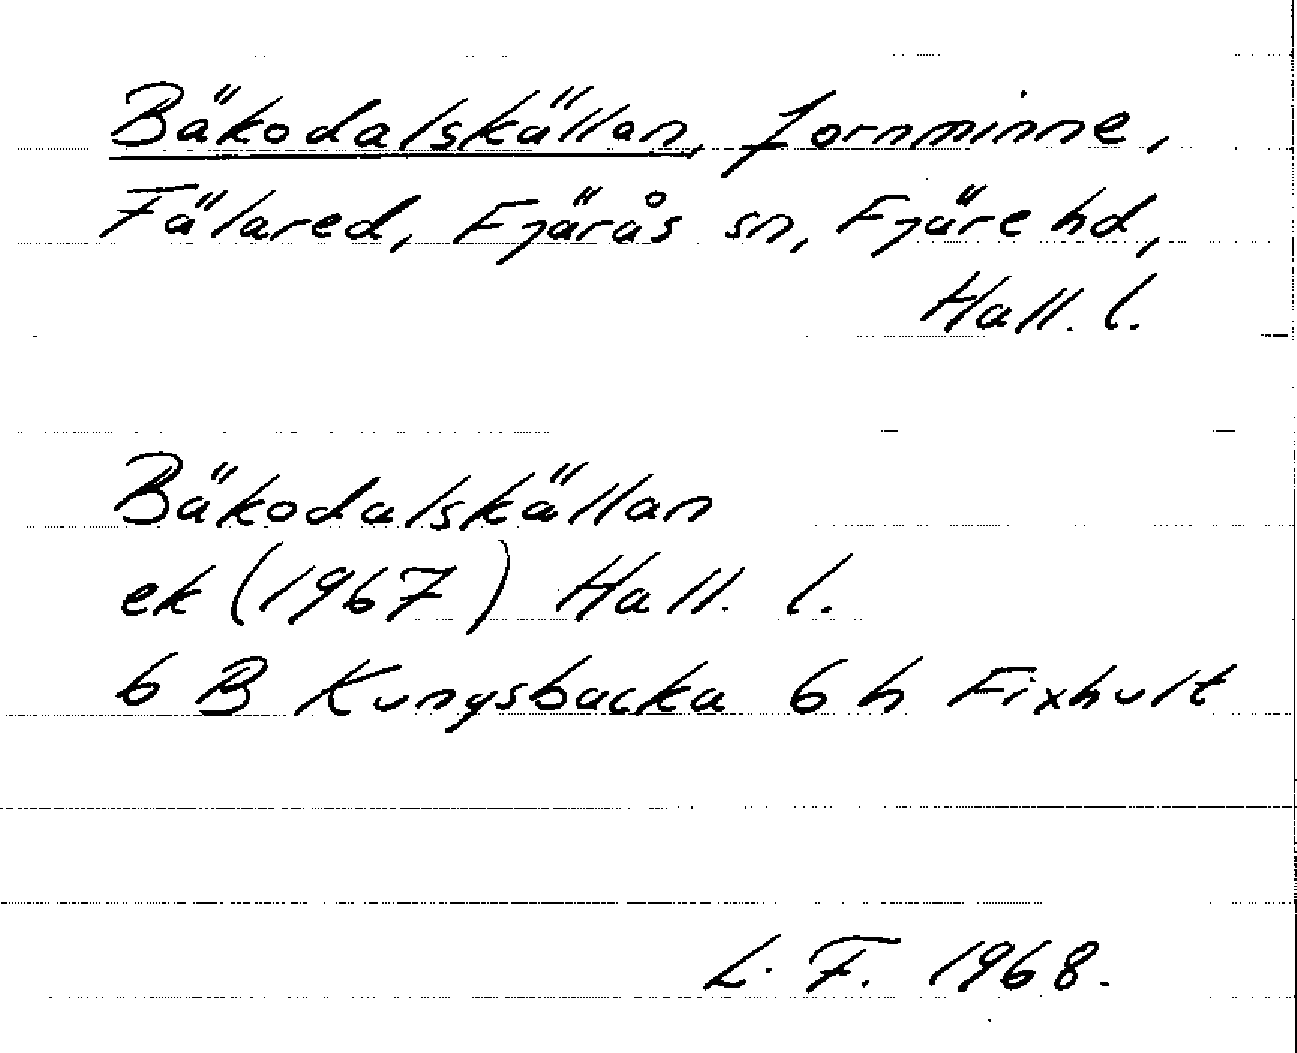 Bäkodalskällan, fornminne,
Fälared, Fjärås sn, Fjäre hd,
Hall. l.
Bäkodalskällan
ek (1967) Hall. l.
6 B Kungsbacka 6 h Fixhult
L. F. 1968.